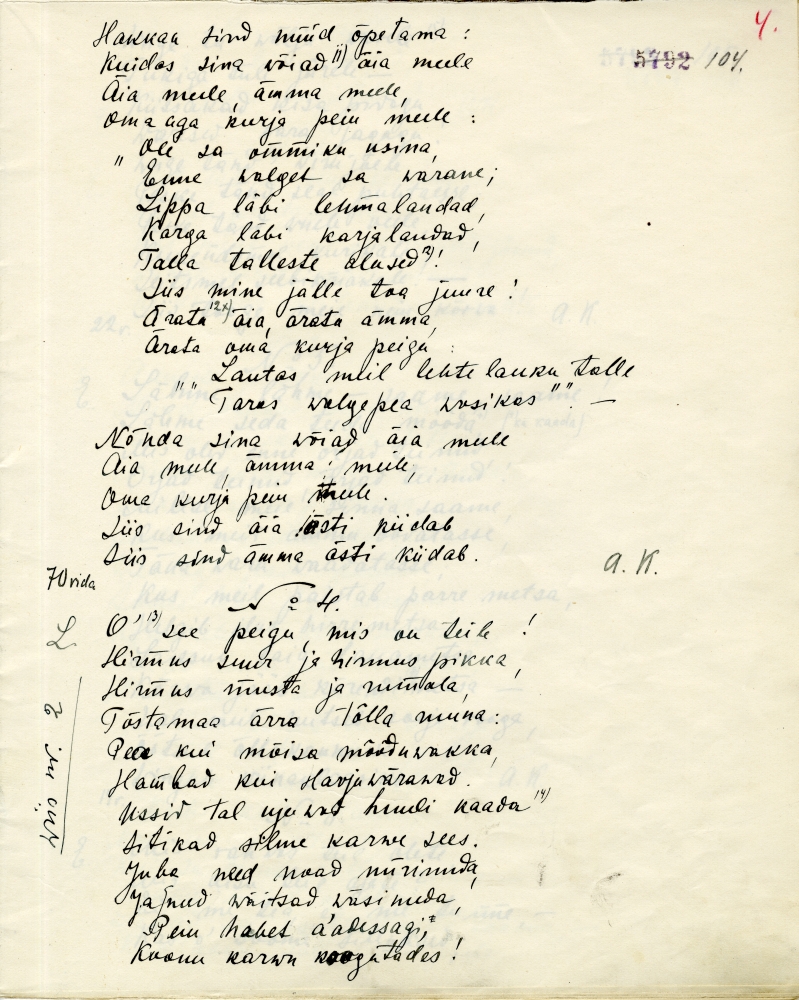 4.
5792 104.
Hakkan sind nüüd õpetama:
Kuidas sina wõiad ¹¹) äia meele
Äia meele, ämma meele,
Oma aga kurja peiu meele:
„Ole sa ommiku usina,
Enne walget sa warane;
Lippa läbi lehmalaudad,
Karga läbi karjalaudad,
Talla talleste alused ²)!
Siis mine jälle toa juure!
Ärata ¹²ˣ) äia, ärata ämma,
Ärata oma kurja peigu:
„„Lautas meil lehte lauku talle
Taras walgepea wasikas““. —
Nõnda sina wõiad äia meele
Äia meele, ämma meele,
Oma kurja peiu meele.
Siis sind äia ästi kiidab
Siis sind ämma ästi kiidab.
A. K.
70 rida
№ 4.
O' ¹³) see peigu, mis on teile!
Hirmus suur ja hirmus pikka,
Hirmus musta ja rumala,
Tõstamaa ärra Tõlla muna:
Pea kui mõisa mõõduwakka,
Hambad kui Harjuwärawad.
Ussid tal ujuwad huuli kaada ¹⁴)
Sitikad silme karwe sees.
Juba need noad nürinuda,
Ja jnud wäitsad wäsinuda,
Peiu habet a'adessagi,
Koonu karwu koogutades!